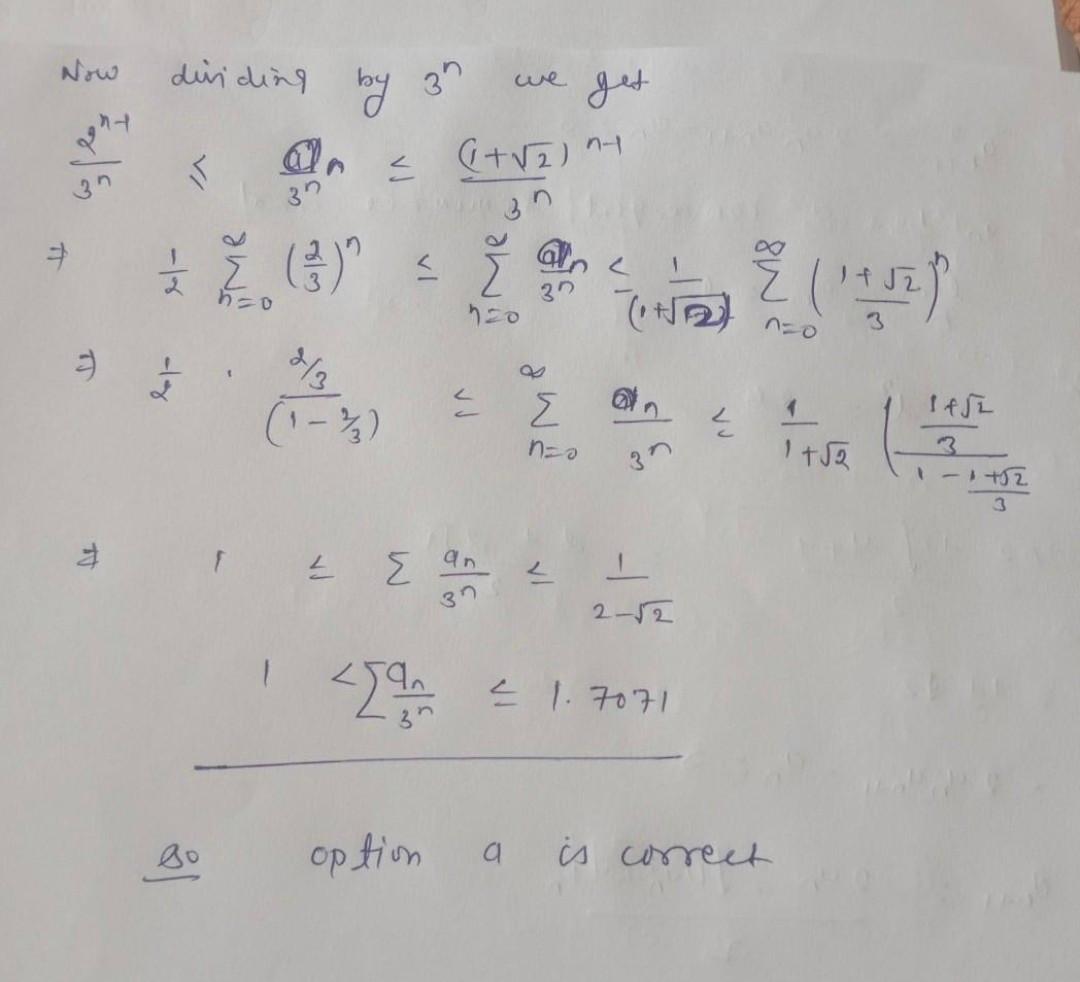 Now dividing by 3ⁿ we get
2ⁿ⁻¹/3ⁿ ≤ aₙ/3ⁿ ≤ (1+√2)ⁿ⁻¹/3ⁿ
⇒ 1/2 ∑_{n=0}^{∞} (2/3)ⁿ ≤ ∑_{n=0}^{∞} aₙ/3ⁿ ≤ 1/(1+√2) ∑_{n=0}^{∞} ((1+√2)/3)ⁿ
⇒ 1/2 · (2/3)/(1-2/3) ≤ ∑_{n=0}^{∞} aₙ/3ⁿ ≤ 1/(1+√2) (((1+√2)/3)/(1-(1+√2)/3)
⇒ 1 ≤ ∑ aₙ/3ⁿ ≤ 1/(2-√2)
1 < ∑ aₙ/3ⁿ ≤ 1.7071
So option a is correct